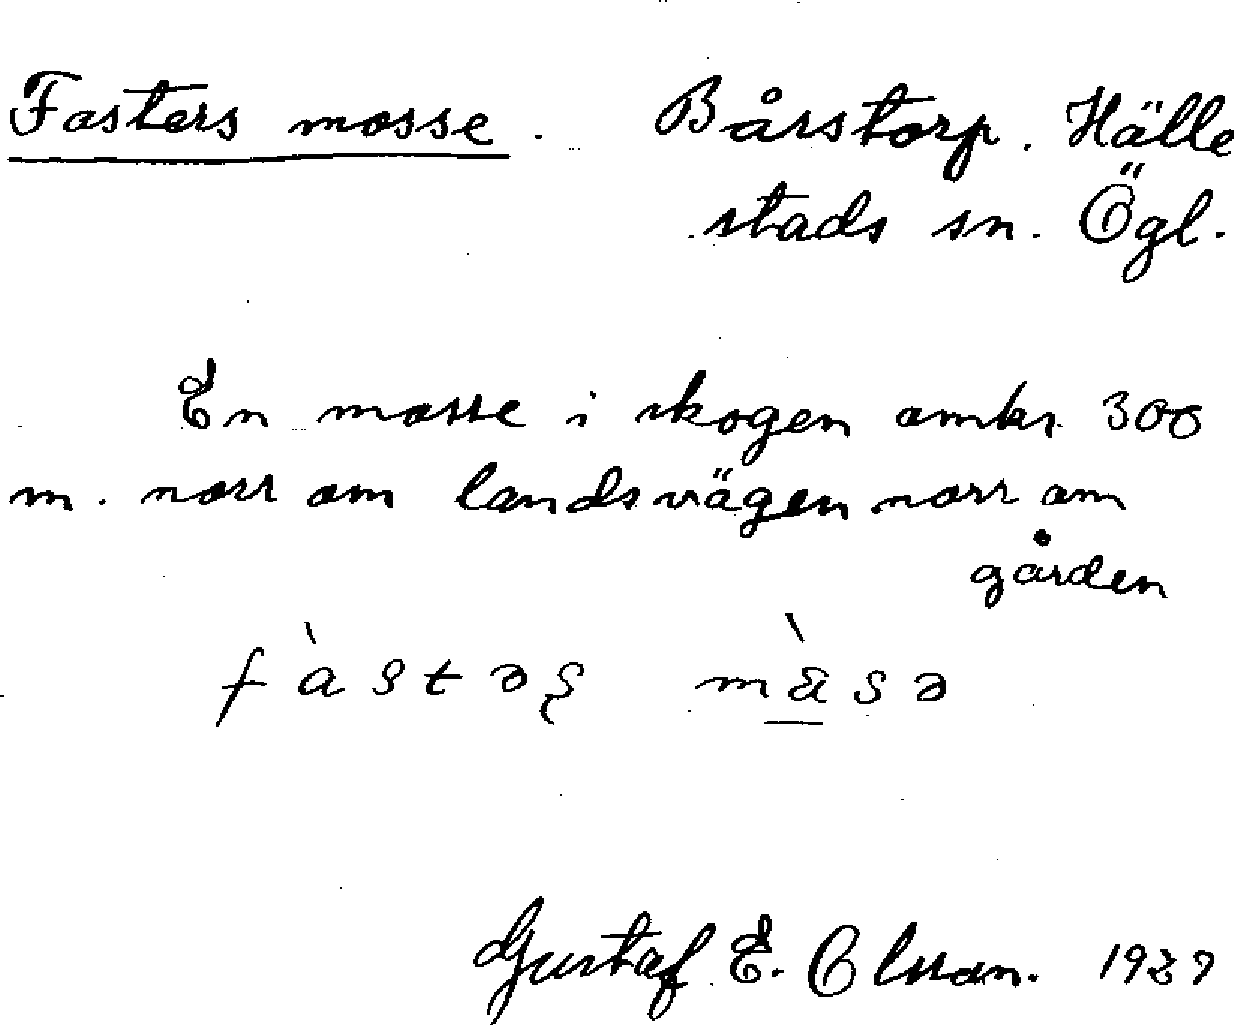 Fasters mosse. Bårstorp. Hälle
stads sn. Ögl.
En mosse i skogen omkr 300
m. norr om landsvägen norr om
gården
fàstəʂ màsə
Gustaf E. Olsson.